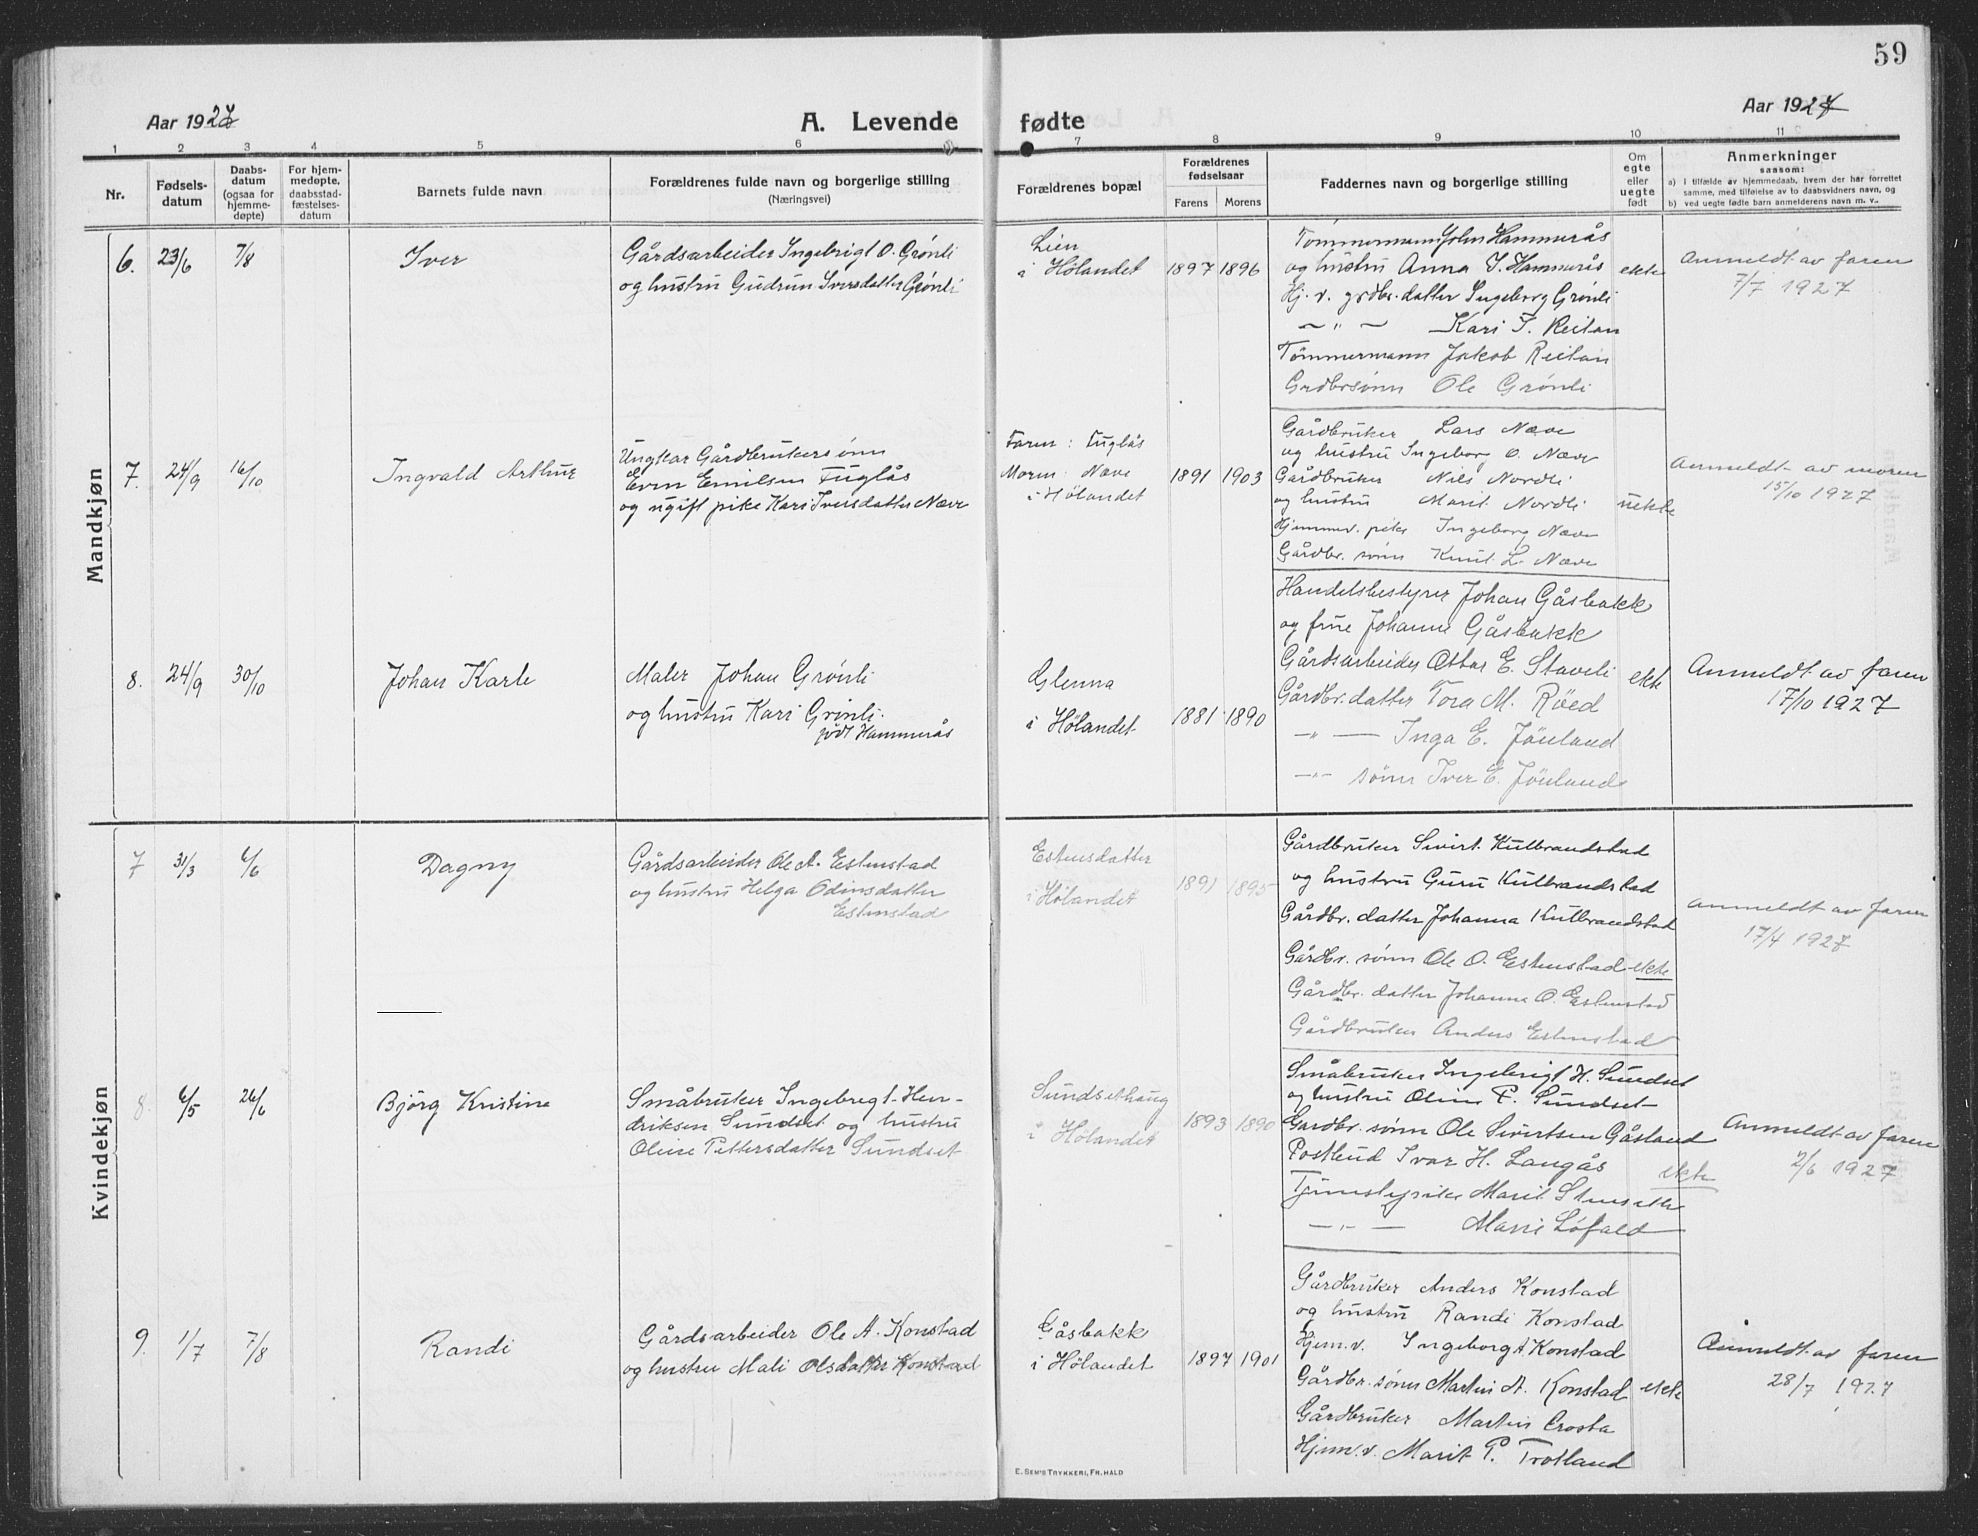 59
Aar 1927
A. Levende fødte
Aar 1927
1 2 3 4 5 6 7 8 9 10 11
Nr.
Fødsels-
datum
Daabs-
datum
(ogsaa for
hjemme-
døpte)
For hjem-
medøpte,
daabsstad-
fæstelses-
datum
Barnets fulde navn
Forældrenes fulde navn og borgerlige stilling
(Næringsvei)
Forældrenes bopæl
Forældrenes
fødselsaar
Farens Morens
Faddernes navn og borgerlige stilling
Om
egte
eller
uegte
født
Anmerkninger
saasom:
a) i tilfælde av hjemmedaab, hvem der har forrettet
samme, med tilføielse av to daabsvidners navn, og
b) ved uegte fødte barn anmelderens navn m. v..
Mandkjøn
6. 23/6 7/8 Iver
Gårdsarbeider Ingebrigt O. Grönli
og hustru Gudrun Iversdatter Grönli
Lien
i Hölandet
1897 1896
Tömmermann John Hammerås
og hustru Anna J. Hammerås
Hj. v. grdbr. datter Ingeborg Grönli
— " — Kari J. Reitan
Tömmermann Jakob Reitan
Grdbrsönn Ole Grönli
ekte
Anmeldt av faren
7/7 1927
7. 24/9 16/10 Ingvald Arthur
Ungkar Gårdbrukersönn
Even Emilsen Fuglås
og ugift pike Kari Iversdatter Næve
Faren: Fuglås
Moren: Næve
i Hölandet
1891 1903
Gårdbruker Lars Næve
og hustru Ingeborg O. Næve
Gårdbruker Nils Nordli
og hustru Marit Nordli
Hjemmev. pike Ingeborg Næve
Gårdbr. sönn Knut L. Næve
uekte
Anmeldt av moren
15/10 1927
8. 24/9 30/10 Johan Karle
Maler Johan Grönli
og hustru Kari Grönli
född Hammerås
Glenna
i Hölandet
1881 1890
Handelsbestyrer Johan Gåsbakk
og frue Johanne Gåsbakk
Gårdsarbeider Ottar E. Staveli
Gårdbr. datter Tora M. Röed
— " — Inga E. Jöuland
— " — sönn Iver E. Jöuland
ekte
Anmeldt av faren
17/10 1927
Kvindekjøn
7 31/3 6/6 Dagny
Gårdsarbeider Ole A. Estenstad
og hustru Helga Odinsdatter
Estenstad
Estensdatter
i Hölandet
1891 1895
Gårdbruker Sivert Kulbrandstad
og hustru Guru Kulbrandstad
Gårdbr. datter Johanna Kulbrandstad
Gårdbr. sönn Ole O. Estenstad
Gårdbr. datter Johanna O. Estenstad
Gårdbruker Anders Estenstad
ekte
Anmeldt av faren
17/4 1927
8. 6/5 26/6 Björg Kristine
Småbruker Ingebregt Hen-
driksen Sundset og hustru
Oline Pettersdatter Sundset
Sundsethaug
i Hölandet
1893 1890
Småbruker Ingebrigt H. Sundset
og hustru Oline P. Sundset
Gardbr. sönn Ole Sivertsen Gåsland
Postbud Ivar H. Langås
Tjenestepike Marit Stenseth
— " — Marie Löfald
ekte
Anmeldt av faren
2/6 1927
9. 1/7 7/8 Randi
Gårdsarbeider Ole A. Konstad
og hustru Mali Olsdatter Konstad
Gåsbakk
i Hölandet
1897 1901
Gårdbruker Anders Konstad
og hustru Randi Konstad
Hjem.v. Ingeborg A. Konstad
Gårdbr. sönn Martin A. Konstad
Gårdbruker Martin Crosta
Hjem.v. Marit P. Trotland
ekte
Anmeldt av faren
28/7 1927
E. SEM'S TRYKKERI, FR.HALD